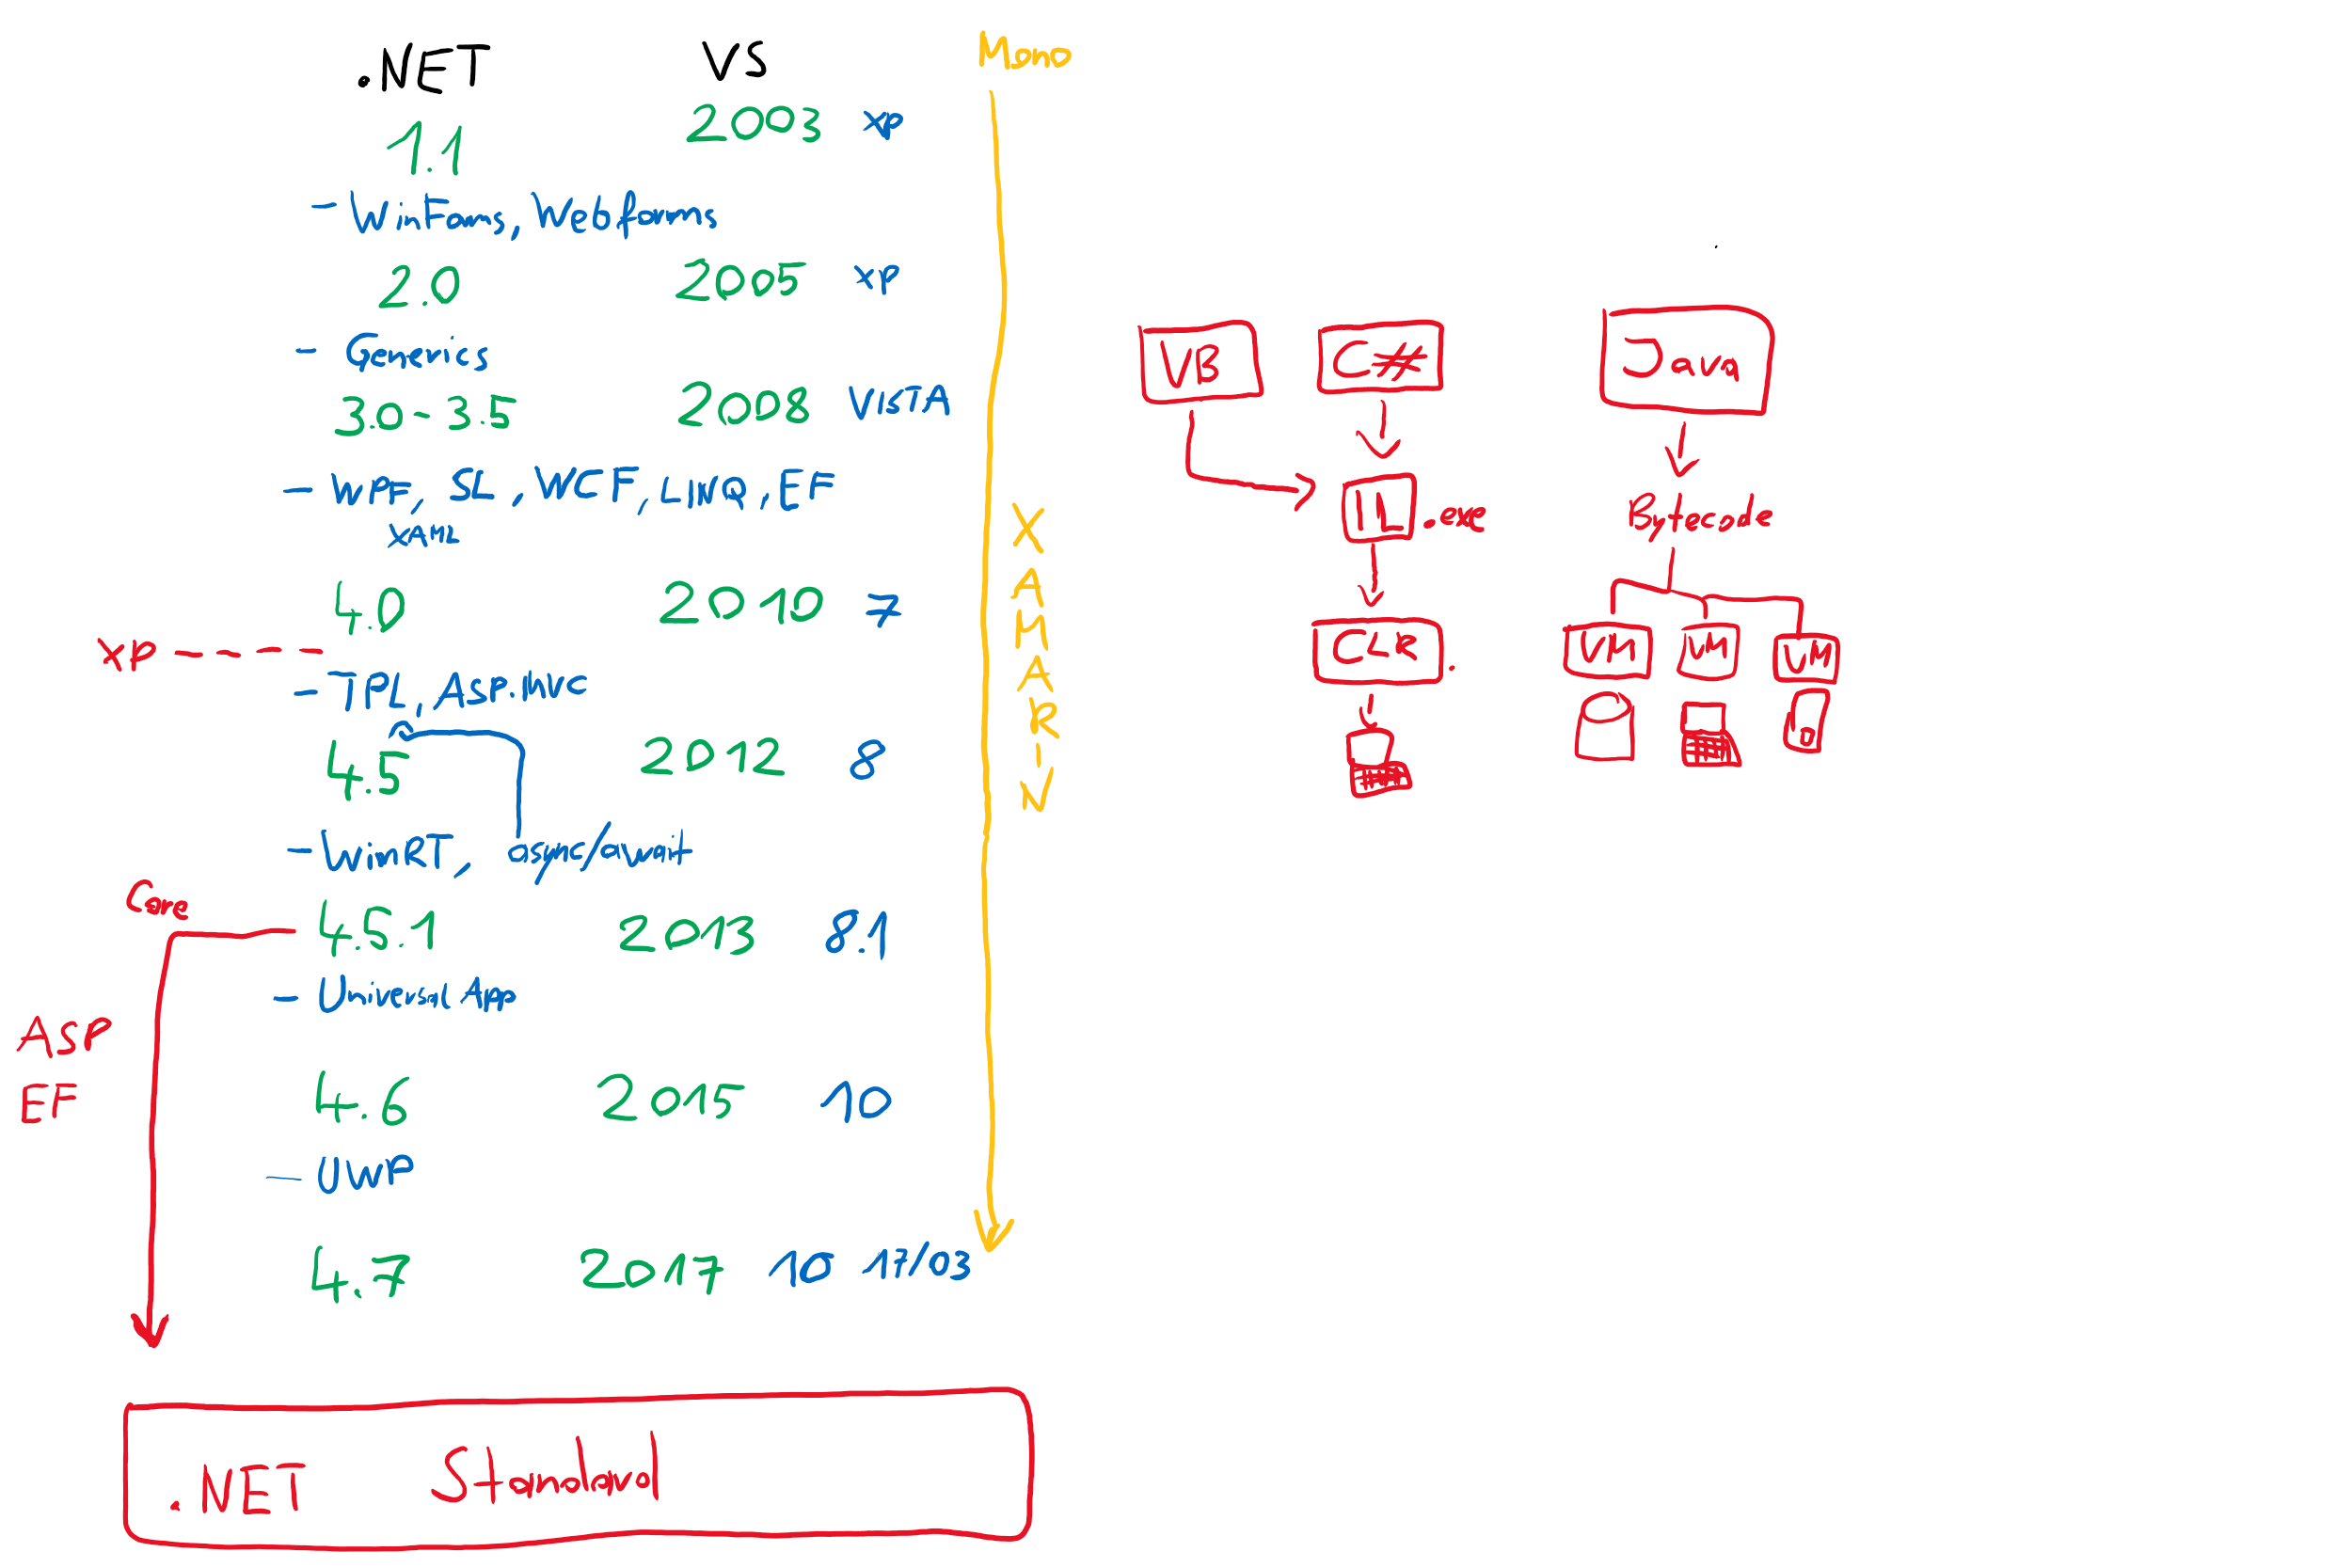 .NET VS Mono
1.1 2003 XP
- WinForms, Webforms
2.0 2005 XP
- Generics
3.0-3.5 2008 VISTA
- WPF, SL, WCF, LINQ, EF
XAML
4.0 2010 7
XP - - - - -
- TPL, ASP.MVC
4.5 2012 8
- WinRT, async/await
Core
4.5.1 2013 8.1
- Universal App
ASP
EF
4.6 2015 10
- UWP
4.7 2017 10 17/03
XAMARIN
.NET Standard
VB C# Java
IL .exe Bytecode
CLR VM VM VM